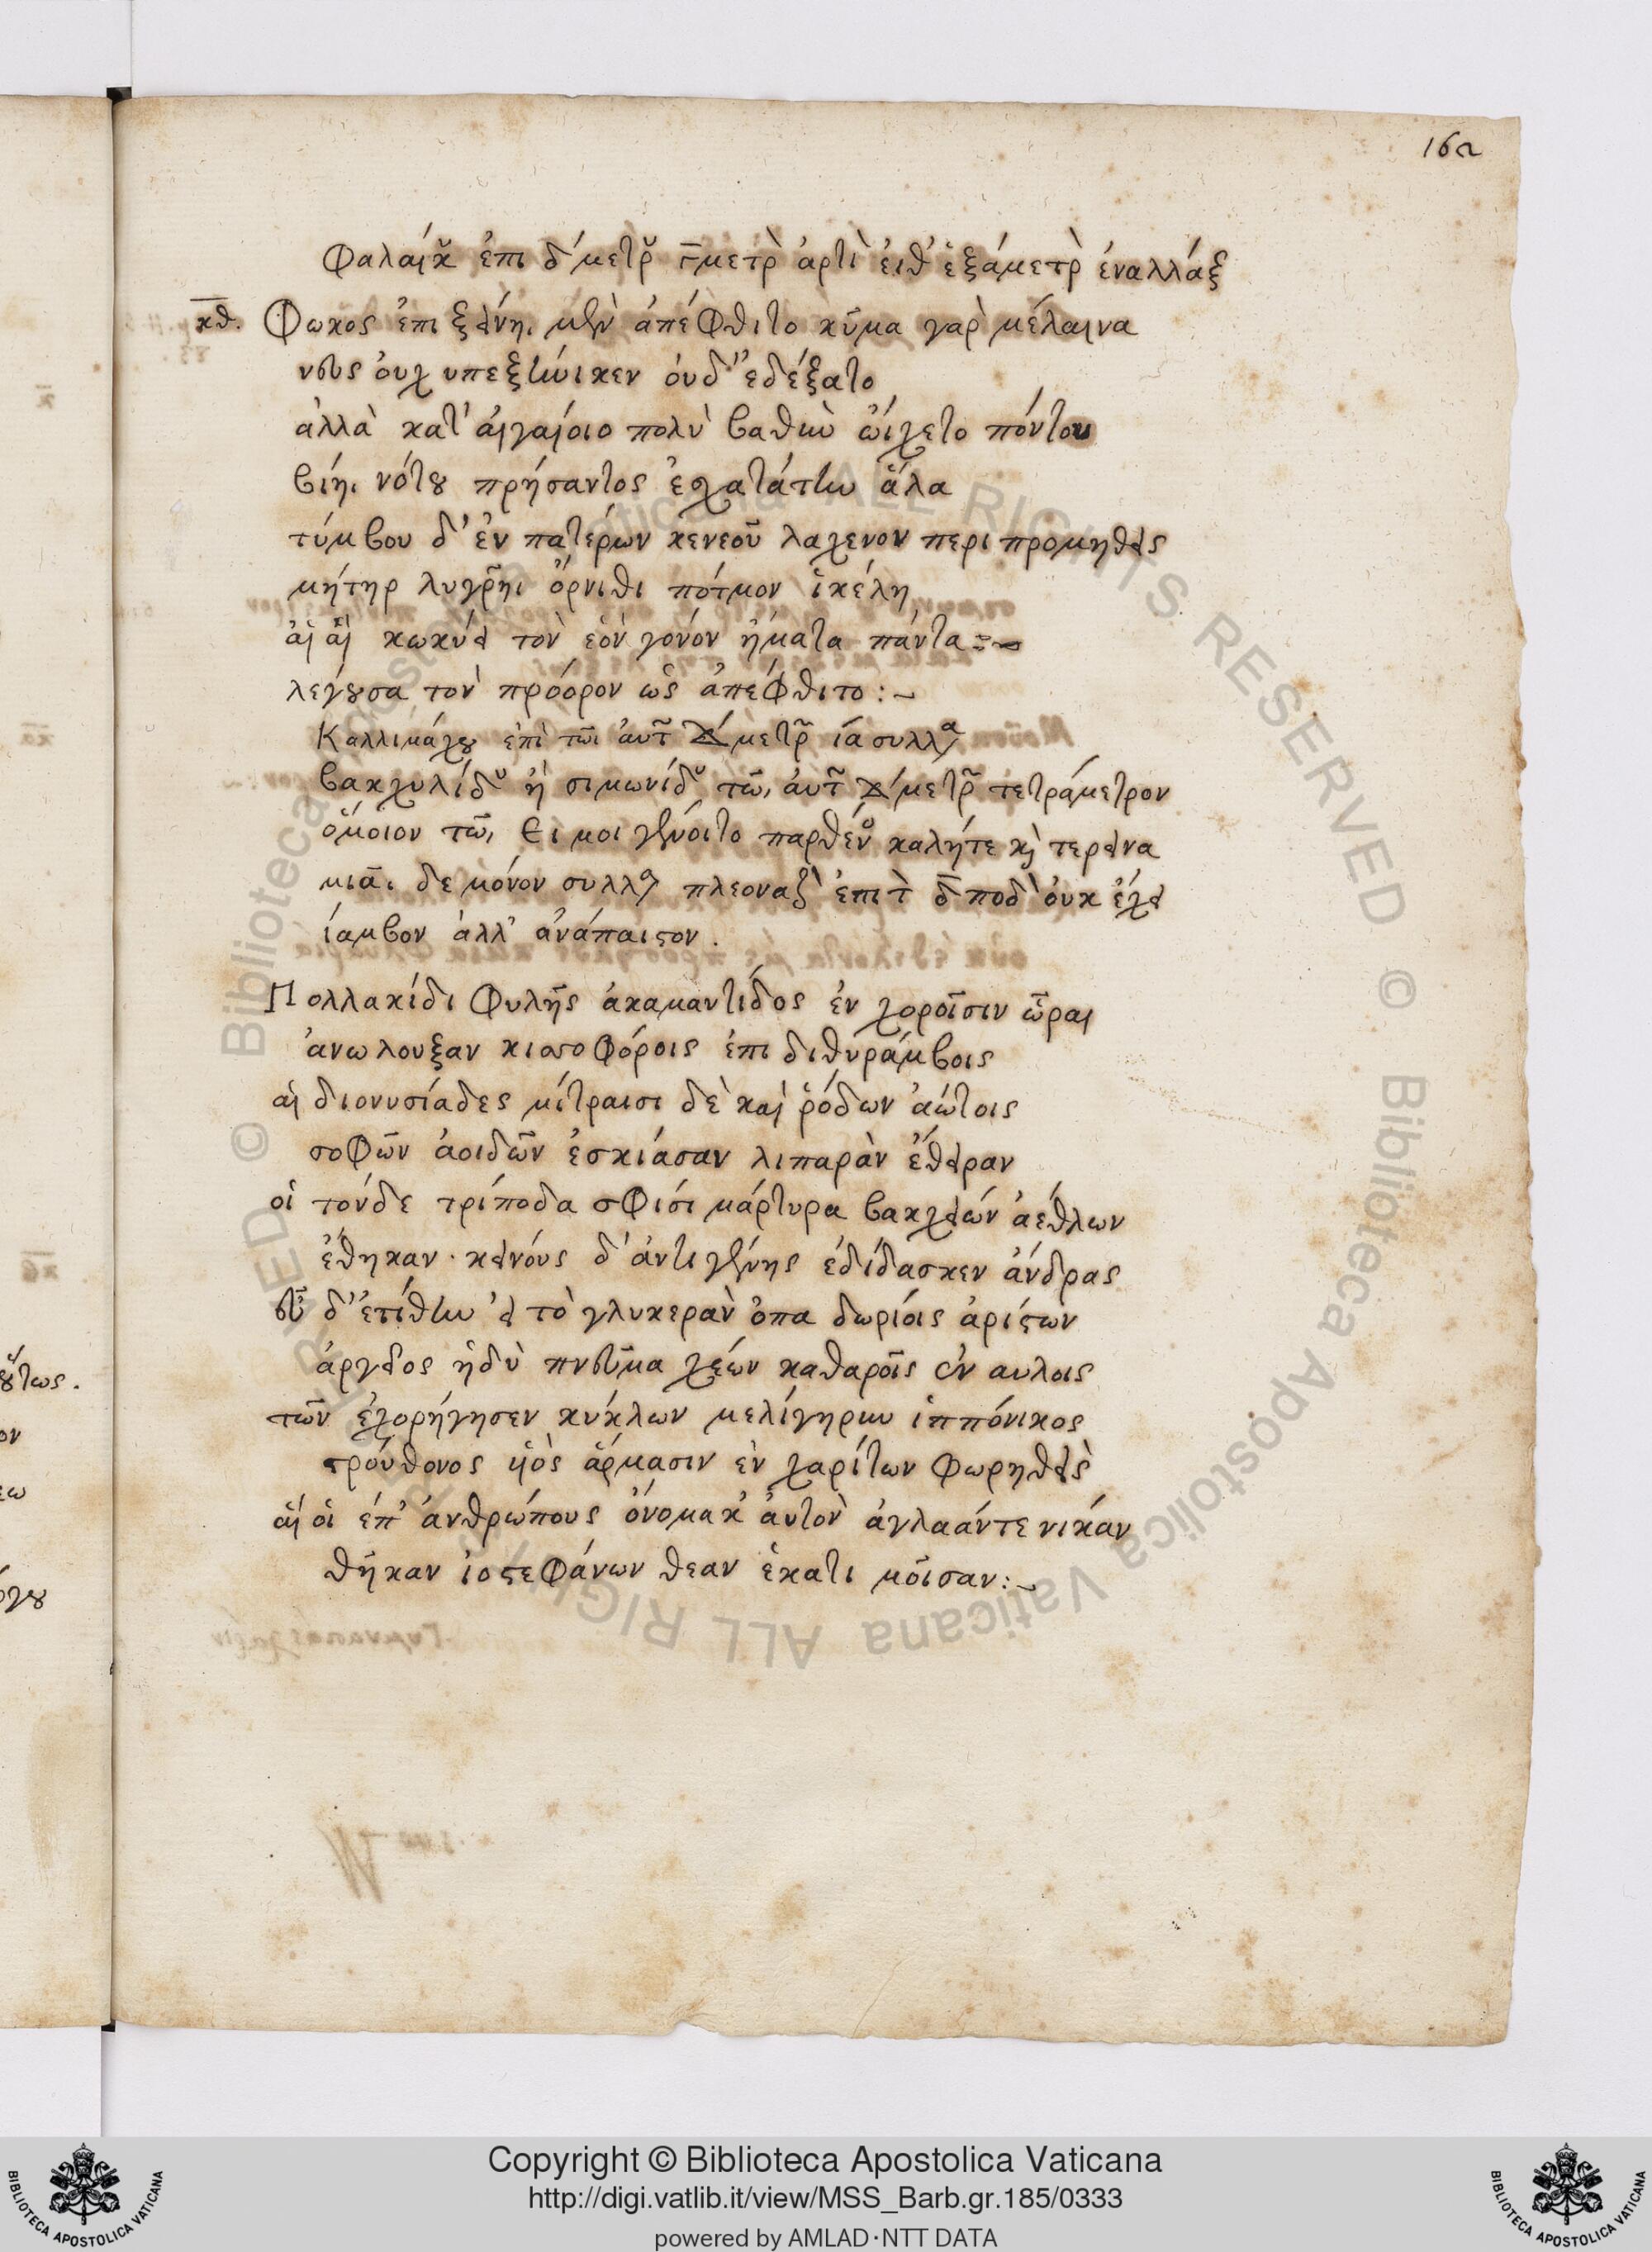 162
Φαλαίκου ἐπι δ´μετρ γ̅μετρ ἀρτι ἐιθ' ἑξάμετρ ἐναλλάξ
κθ. Φωκος ἐπι ξείνηι μὲν ἀπέφθιτο κῦμα γαρ μέλαινα
ναυς ὀυχ υπεξήνικεν ὀυδ' ἐδέξατο
ἀλλὰ κατ' ἀιγαίοιο πολὺ βαθιὺ ὤιχετο πόντου
βίηι νότου πρήσαντος ἐσχατάτην ἅλα
τύμβου δ' ἐν πατέρων κενεοῦ λαχενον περι προμηθεις
μήτηρ λυγρῆι ὄρνιθι πότμον ἰκέλη
ἀὶ ἀὶ κωκύει τὸν ἑὸν γόνον ἤματα πάντα:~
λέγουσα τὸν πρόορον ὡς ἀπέφθιτο:~
Καλλιμάχου ἐπὶ τῶι ἀυτ δίμετρ ία συλλα
βακχυλίδου ἢ σιμωνίδου τῶι ἀυτ δίμετρ τετράμετρον
ὅμοιον τῶι Ει μοι γένοιτο παρθένο καλήτε κὶ τερεινα
μιᾶι δε μόνον συλλα πλεοναζ ἐπι τ δ̅ποδ ὀυκ ἔχει
ίαμβον ἀλλ' ἀνάπαιστον.
Πολλακίδι Φυλῆς ἀκαμαντίδος ἐν χοροῖσιν ὧραι
ἀνωλουξαν κισσοφόροις ἐπι διθυράμβοις
αἱ διονυσίαδες μίτραισι δὲ καὶ ῥόδων ἀώτοις
σοφῶν ἀοιδῶν ἐσκίασαν λιπαρὰν ἔθειραν
οἱ τόνδε τρίποδα σφισι μάρτυρα βακχείων ἀέθλων
ἔθηκαν. κεινους δ' ἀντιγένης ἐδίδασκεν ἄνδρας
εὖ δ' ἐτίθην ει το γλυκερὰν ὄπα δωρίοις ἀρίστων
ἀργειος ἡδὺ πνεῦμα χέων καθαροῖς ἐν αυλοις
τῶν ἐχορήγησεν κύκλων μελίγηρυν ἱππόνικος
τρούθονος υἱὸς ἅρμασιν ἐν χαρίτων φωρηθεὶς
αἵ οἱ επ' ἀνθρώπους ὄνομακ' ἀυτὸν ἀγλαάντε νικάν
θῆκαν ἰοστεφάνων θεαν ἕκατι μοῖσαν:~
Copyright © Biblioteca Apostolica Vaticana
http://digi.vatlib.it/view/MSS_Barb.gr.185/0333
powered by AMLAD·NTT DATA
BIBLIOTECA APOSTOLICA VATICANA
BIBLIOTECA APOSTOLICA VATICANA
© Biblioteca Apostolica Vaticana ALL RIGHTS RESERVED © Biblioteca Apostolica Vaticana ALL RIGHTS RESERVED